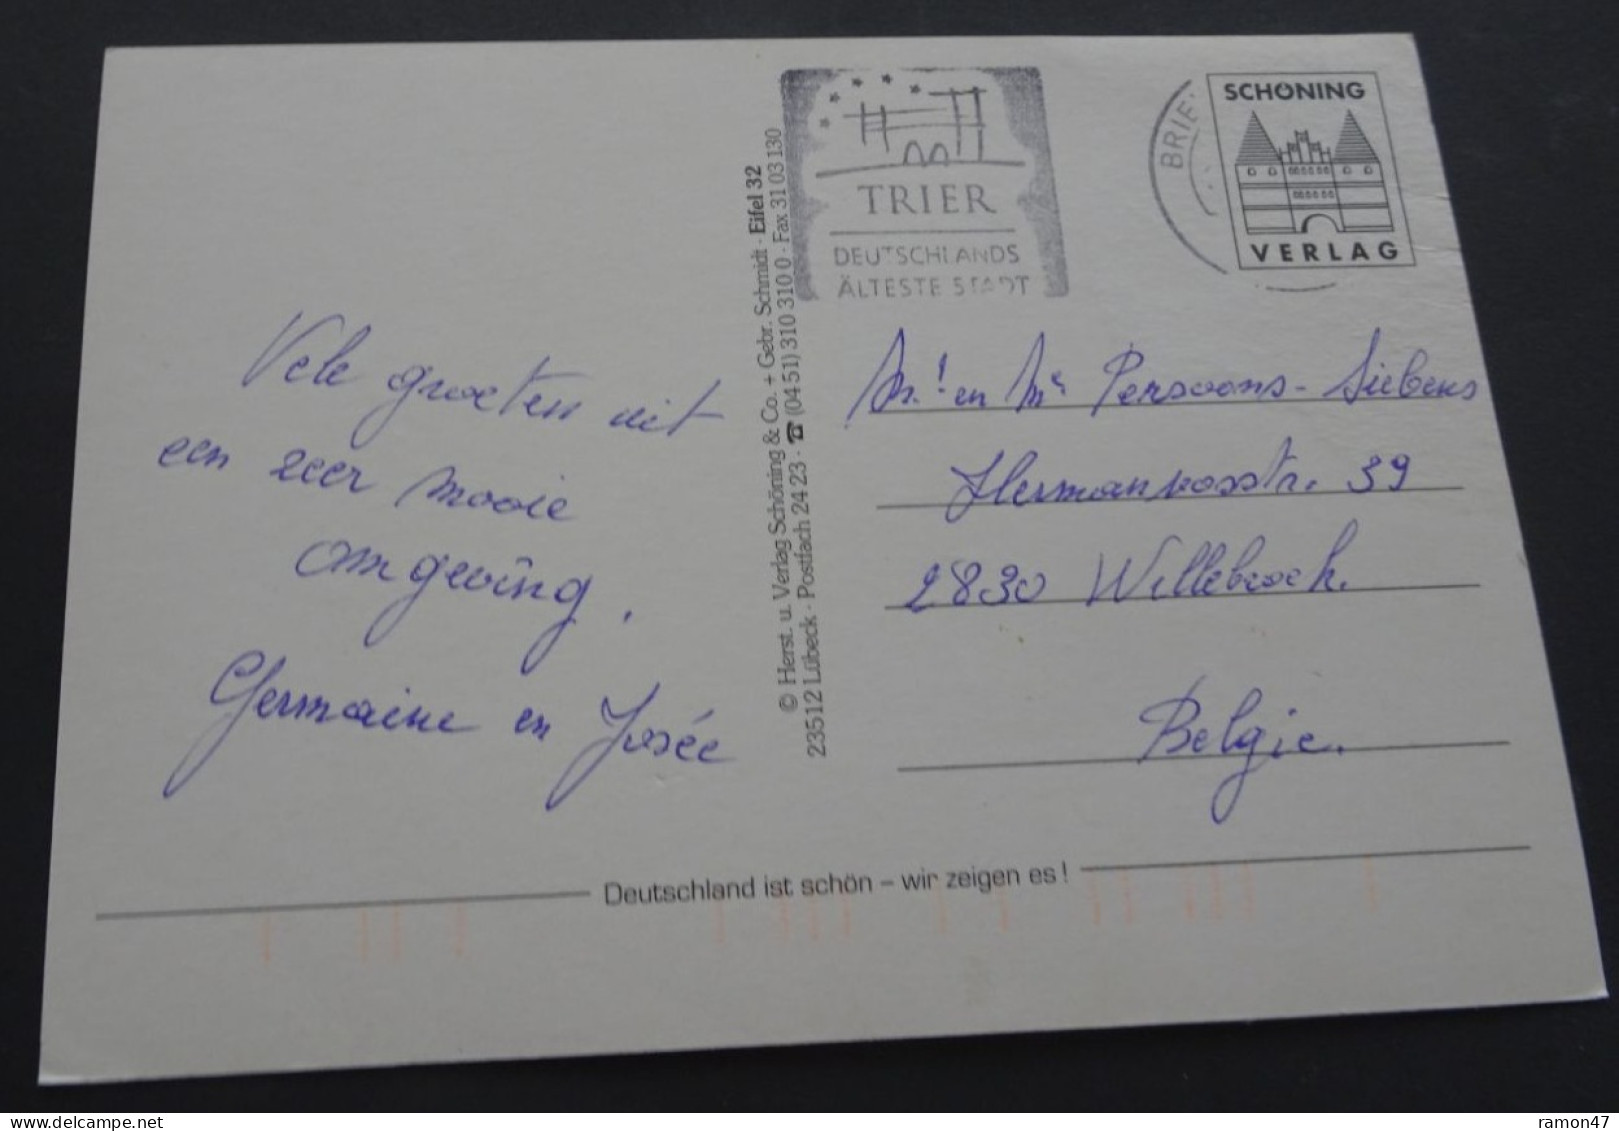 Vele groeten uit
een zeer mooie
omgeving.
Germaine en Josée
© Herst. u. Verlag Schöning & Co. + Gebr. Schmidt · Eifel 32
23512 Lübeck · Postfach 24 23 · ☎ (04 51) 310 310 0 · Fax 31 03 130
TRIER
DEUTSCHLANDS
ÄLTESTE STADT
BRIE
SCHÖNING
VERLAG
en Persoons - Siebens
39
2830 Willebroek.
Belgie.
Deutschland ist schön – wir zeigen es!
ramon47